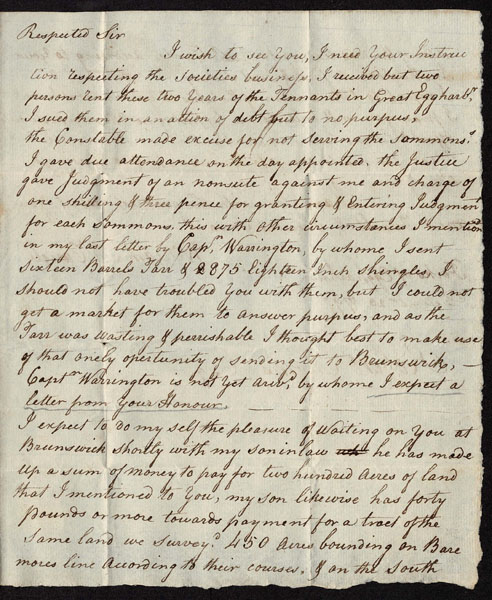 Respected Sir
I wish to see You, I need Your Instruc
tion respecting the Societies business, I received but two
persons rent these two Years of the Tennants in Great Eggharbr,
I sued them in an action of debt but to no purpus,
the Constable made excuse for not serving the Sommons.
I gave due attendance on the day appointed. the Justice
gave Judgment of an nonsuite against me and charge of
one shilling & three pence for granting & Entering Judgmen
for each Sommons. this with other circumstances I mentiond
in my last letter by Capn. Warrington, by whome I sent
Sixteen Barrels Tarr & 2875 Eighteen Inch shingles, I
should not have troubled You with them, but I could not
get a market for them to answer purpus, and as the
Tarr was wasting & perrishable I thought best to make use
of that onely opertunity of sending it to Brunswick, —
Captn Warrington is not Yet arivd. by whome I expect a
letter from Your Honour. — — —
I expect to do my self the pleasure of Waiting on You at
Brunswick Shortly with my soninlaw he has made
up a sum of money to pay for two hundred Acres of land
that I mentioned to You, my son likewise has forty
pounds or more towards payment for a tract of the
Same land we Surveyd. 450 Acres bounding on Bare
mores line According to their courses. & on the South